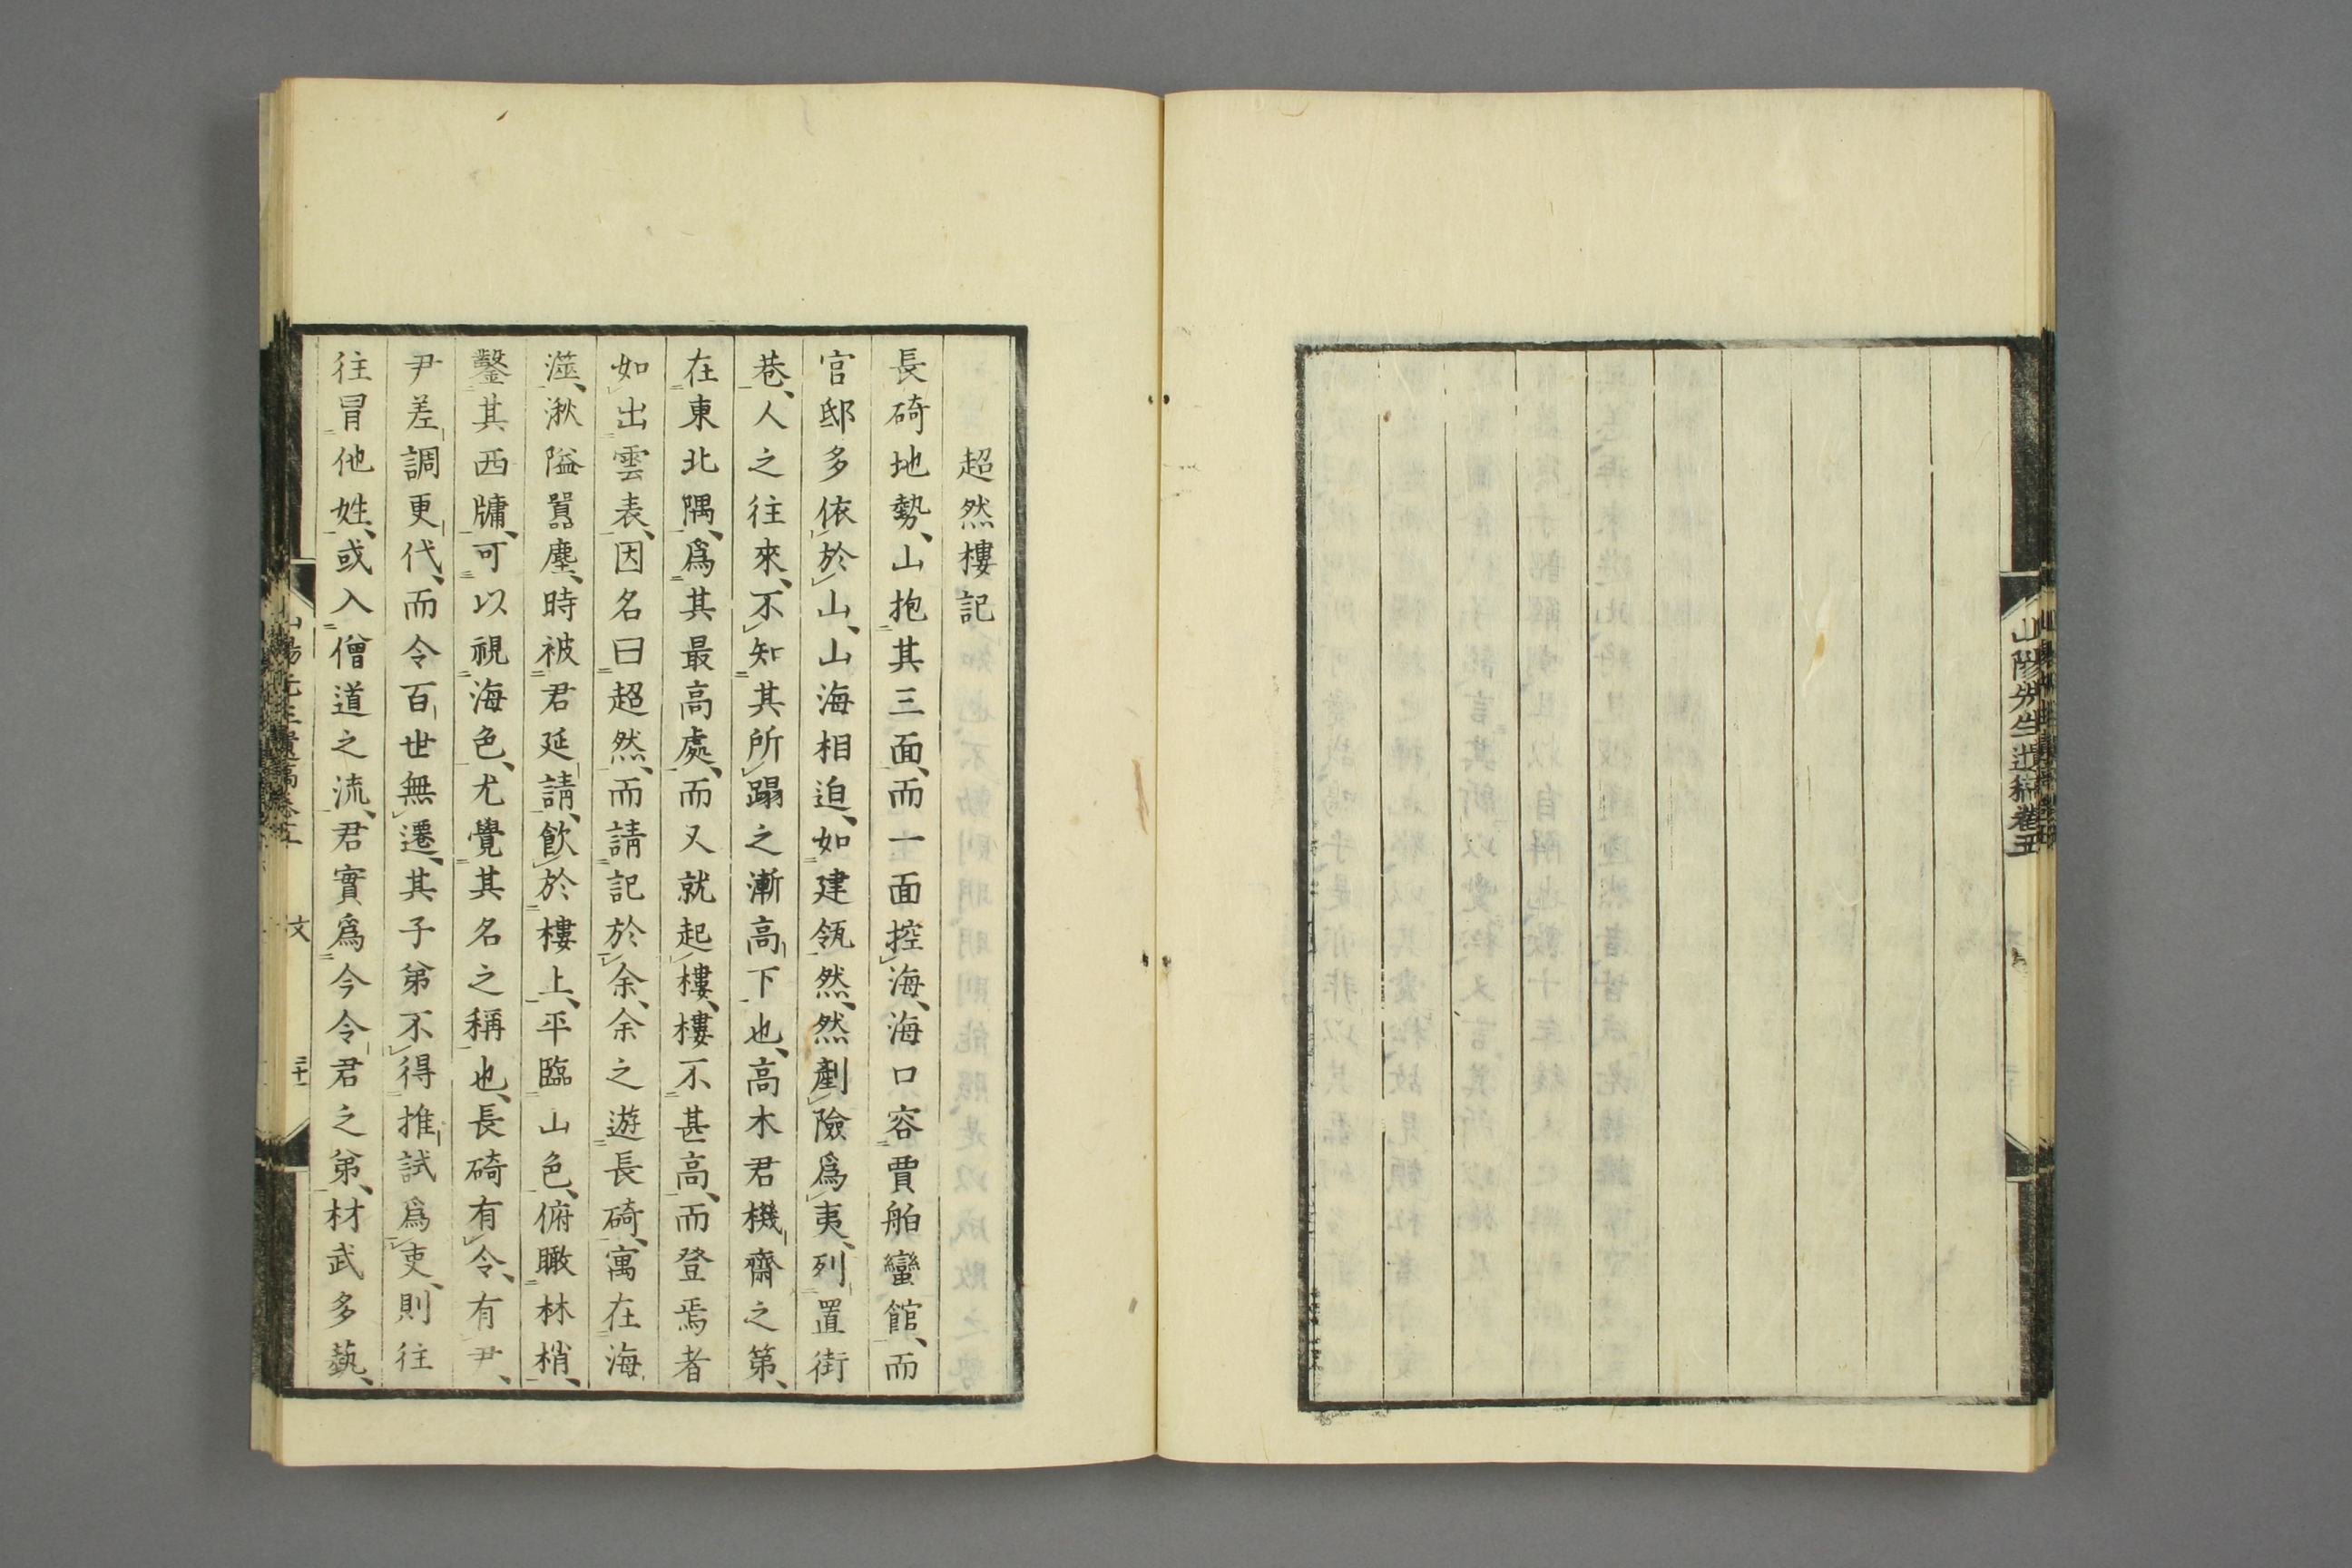 山陽先生遺稿卷五
超然樓記
長碕地勢、山抱其三面、而一面控海、海口容賈舶蠻館、而
官邸多依於山、山海相迫、如建瓴然、然剷險爲夷、列置街
巷、人之往來、不知其所蹋之漸高下也、高木君機齋之第、
在東北隅、爲其最高處、而又就起樓、樓不甚高、而登焉者
如出雲表、因名曰超然、而請記於余、余之遊長碕、寓在海
澨、湫隘囂塵、時被君延請、飲於樓上、平臨山色、俯瞰林梢、
鑿其西牗、可以視海色、尤覺其名之稱也、長碕有令、有尹、
尹差調更代、而令百世無遷、其子弟不得推試爲吏、則往
往冒他姓、或入僧道之流、君實爲今令君之弟、材武多藝、
山陽先生遺稿卷五
文
三十一